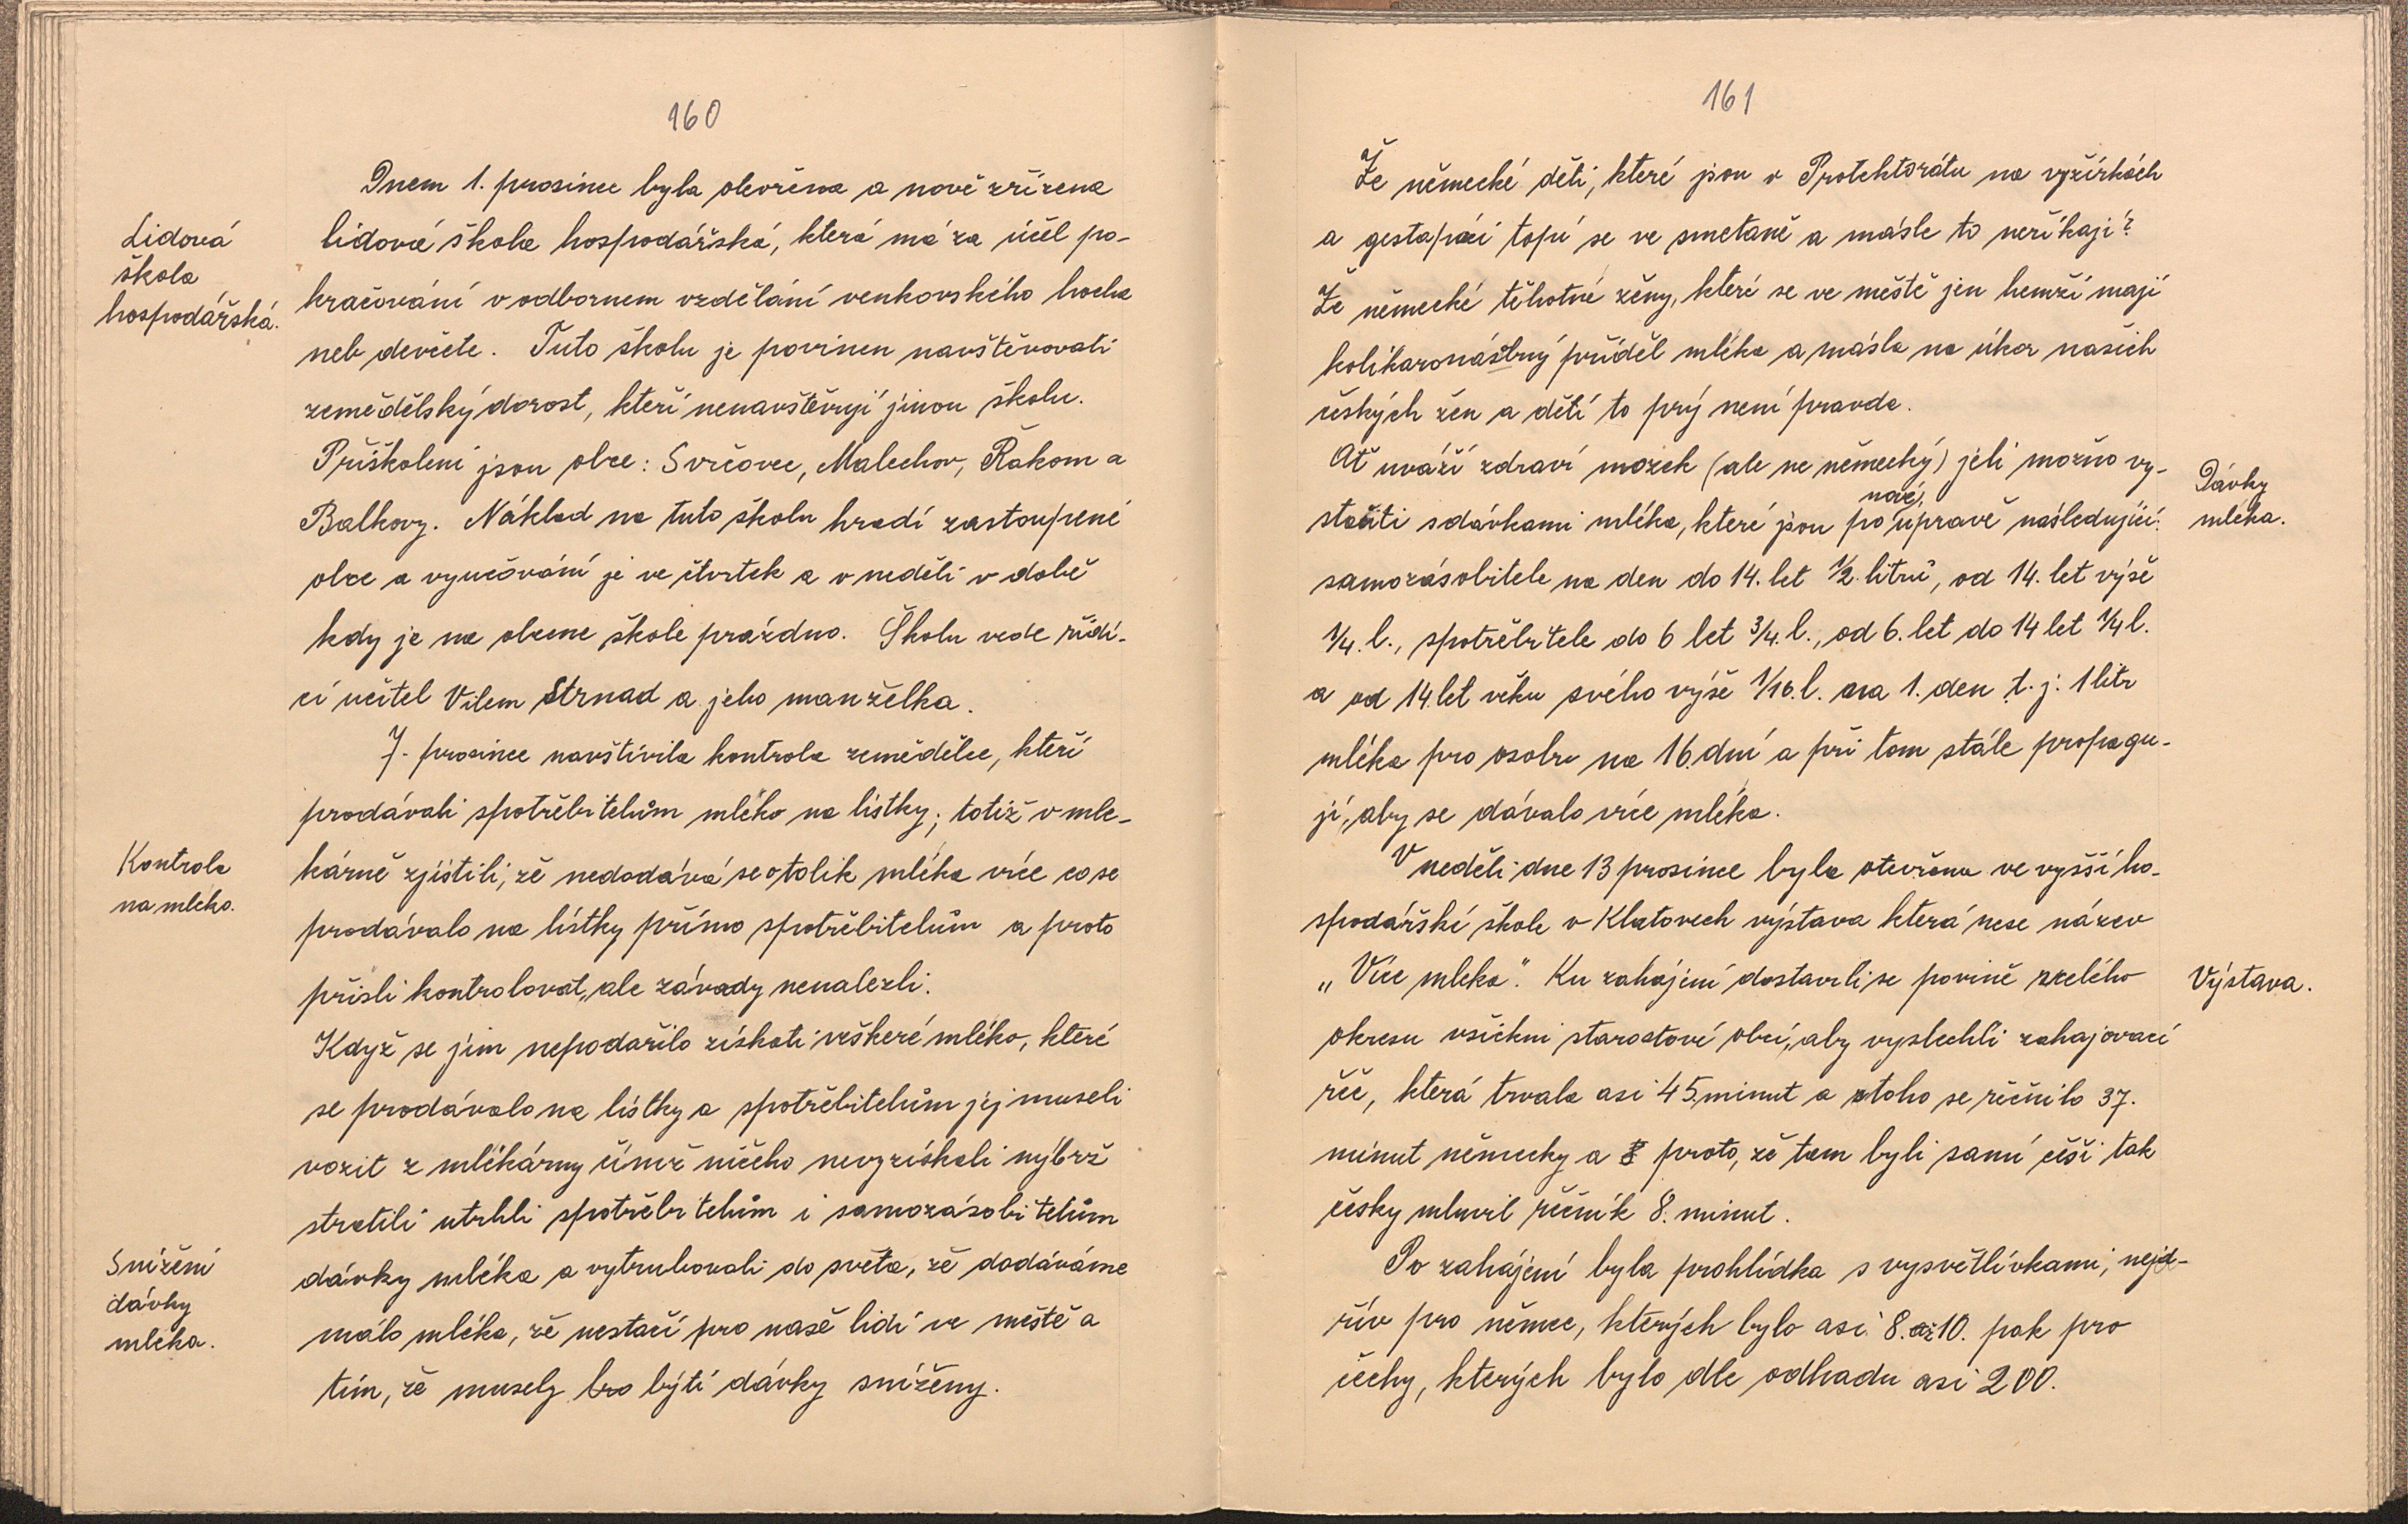 160
Dnem 1. prosince byla otevřena a nově zřízena
Lidová
škola
hospodářská.
lidová škola hospodářská, která má za účel po-
kračování v odbornem vzdělání venkovského hocha
neb děvčete. Tuto školu je povinen navštěvovati
zemědělský dorost, kteří nenavštěvují jinou školu.
Přiškoleni jsou obce: Svrčovec, Malechov, Řakom a
Balkovy. Náklad na tuto školu hradí zastoupené
obce a vyučování je ve čtvrtek a v neděli v době
kdy je na obecne škole prázdno. Školu vede řídí-
cí učitel Vilem Strnad a jeho manželka.
7. prosince navštívila kontrola zemědělce, kteří
prodávali spotřebitelům mléko na lístky; totiž v mle-
Kontrola
na mleko.
kárně zjistili, že nedodává se o tolik mléka více co se
prodávalo na lístky přímo spotřebitelům a proto
přisli kontrolovat, ale závady nenalezli.
Když se jim nepodařilo získati veškeré mléko, které
se prodávalo na lístky a spotřebitelům jej museli
vozit z mlékárny čímž ničeho nevyzískali nýbrž
stratili utrhli spotřebitelům i samozásobitelům
Snížení
dávky
mléka.
dávky mléka a vytrubovali do světa, že dodáváme
málo mléka, že nestačí pro naše lidi ve městě a
tím, že musely býti dávky sníženy.
161
Že německé děti, které jsou v Protektorátu na vyžírkách
a gestapáci topí se ve smetaně a másle to neříkají?
Že německé těhotné ženy, které se ve městě jen hemží mají
kolikaronásbný příděl mléka a másla na úkor našich
českých žen a dětí to prý není pravda.
Ať uváží zdraví mozek (ale ne německý) jeli možno vy-
Dávky
mléka.
stačiti s dávkami mléka, které jsou po nové úpravě následující:
samozásobitele na den do 14. let ½ litrů, od 14. let výše
¼. l., spotřebitele do 6 let ¾. l., od 6. let do 14 let ¼ l.
a od 14. let věku svého výše 1/16. l. na 1. den t. j. 1 litr
mléka pro osobu na 16. dní a při tom stále propagu-
jí, aby se dávalo více mléka.
V neděli dne 13 prosince byla otevřena ve vyšší ho-
spodářské škole v Klatovech výstava která nese název
„Více mleka". Ku zahájení dostavili se povině z celého
Výstava.
okresu všickni starostové obcí, aby vyslechli zahajovací
řeč, která trvala asi 45 minut a z toho se řečnilo 37.
minut německy a proto, že tam byli samí češi tak
česky mluvil řečník 8. minut.
Po zahájení byla prohlídka s vysvětlivkami, nejd-
řív pro němce, kterých bylo asi 8. až 10. pak pro
čechy, kterých bylo dle odhadu asi 200.